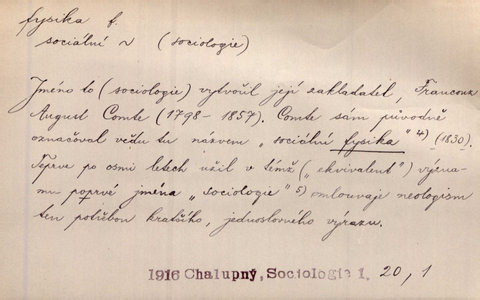 fysika f.
sociální ~ (sociologie)
Jméno to (sociologie) vytvořil její zakladatel, Francouz
August Comte (1798-1857). Comte sám původně
označoval vědu tu názvem „sociální fysika" 4) (1830).
Teprve po osmi letech užil v témž („ekvivalent") význa-
mu poprvé jména „sociologie" 5) omlouvaje neologism
ten potřebou kratšího, jednoslovného výrazu.
1916 Chalupný, Sociologie 1, 20, 1